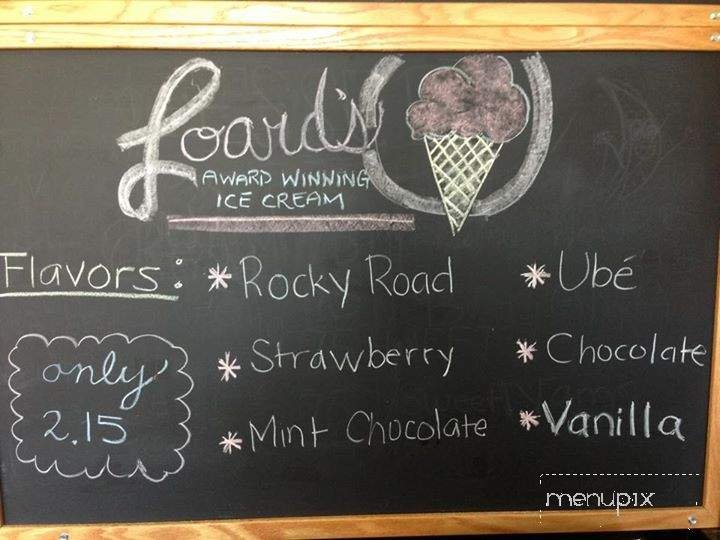 Loard's
AWARD WINNING
ICE CREAM
Flavors: * Rocky Road * Ubé
only 2.15
* Strawberry * Chocolate
* Mint Chocolate * Vanilla
menupix